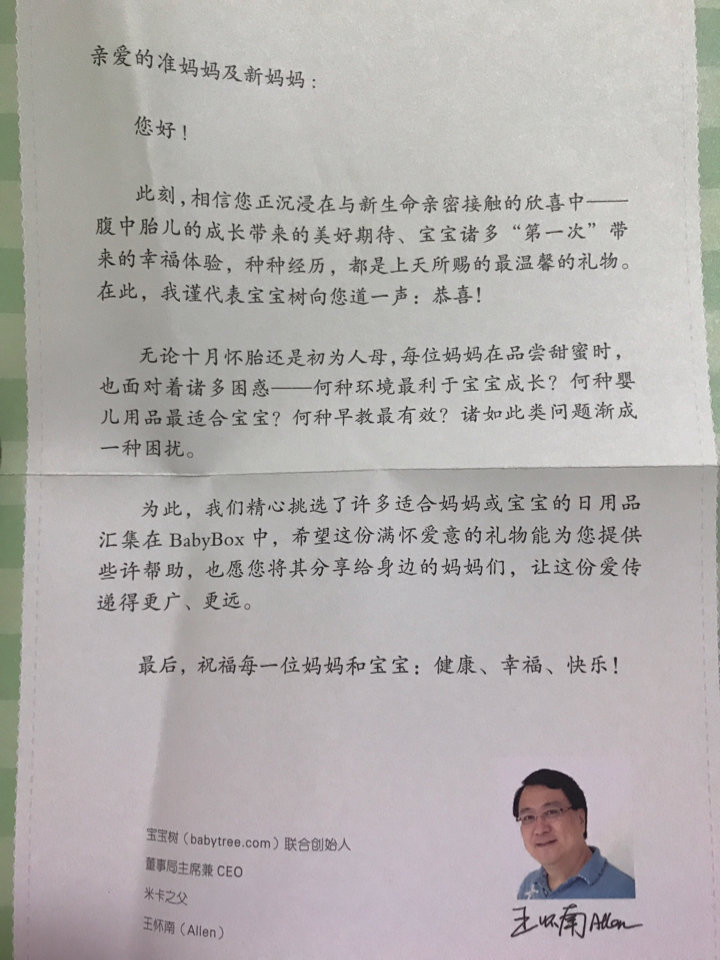 亲爱的准妈妈及新妈妈：
您好！
此刻，相信您正沉浸在与新生命亲密接触的欣喜中——
腹中胎儿的成长带来的美好期待、宝宝诸多“第一次”带
来的幸福体验，种种经历，都是上天所赐的最温馨的礼物。
在此，我谨代表宝宝树向您道一声：恭喜！
无论十月怀胎还是初为人母，每位妈妈在品尝甜蜜时，
也面对着诸多困惑——何种环境最利于宝宝成长？何种婴
儿用品最适合宝宝？何种早教最有效？诸如此类问题渐成
一种困扰。
为此，我们精心挑选了许多适合妈妈或宝宝的日用品
汇集在 BabyBox 中，希望这份满怀爱意的礼物能为您提供
些许帮助，也愿您将其分享给身边的妈妈们，让这份爱传
递得更广、更远。
最后，祝福每一位妈妈和宝宝：健康、幸福、快乐！
宝宝树（babytree.com）联合创始人
董事局主席兼 CEO
米卡之父
王怀南（Allen）
王怀南 Allen